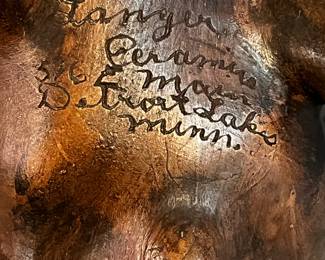 Langer
Ceramics
516 E Main
Detroit Lakes
Minn.